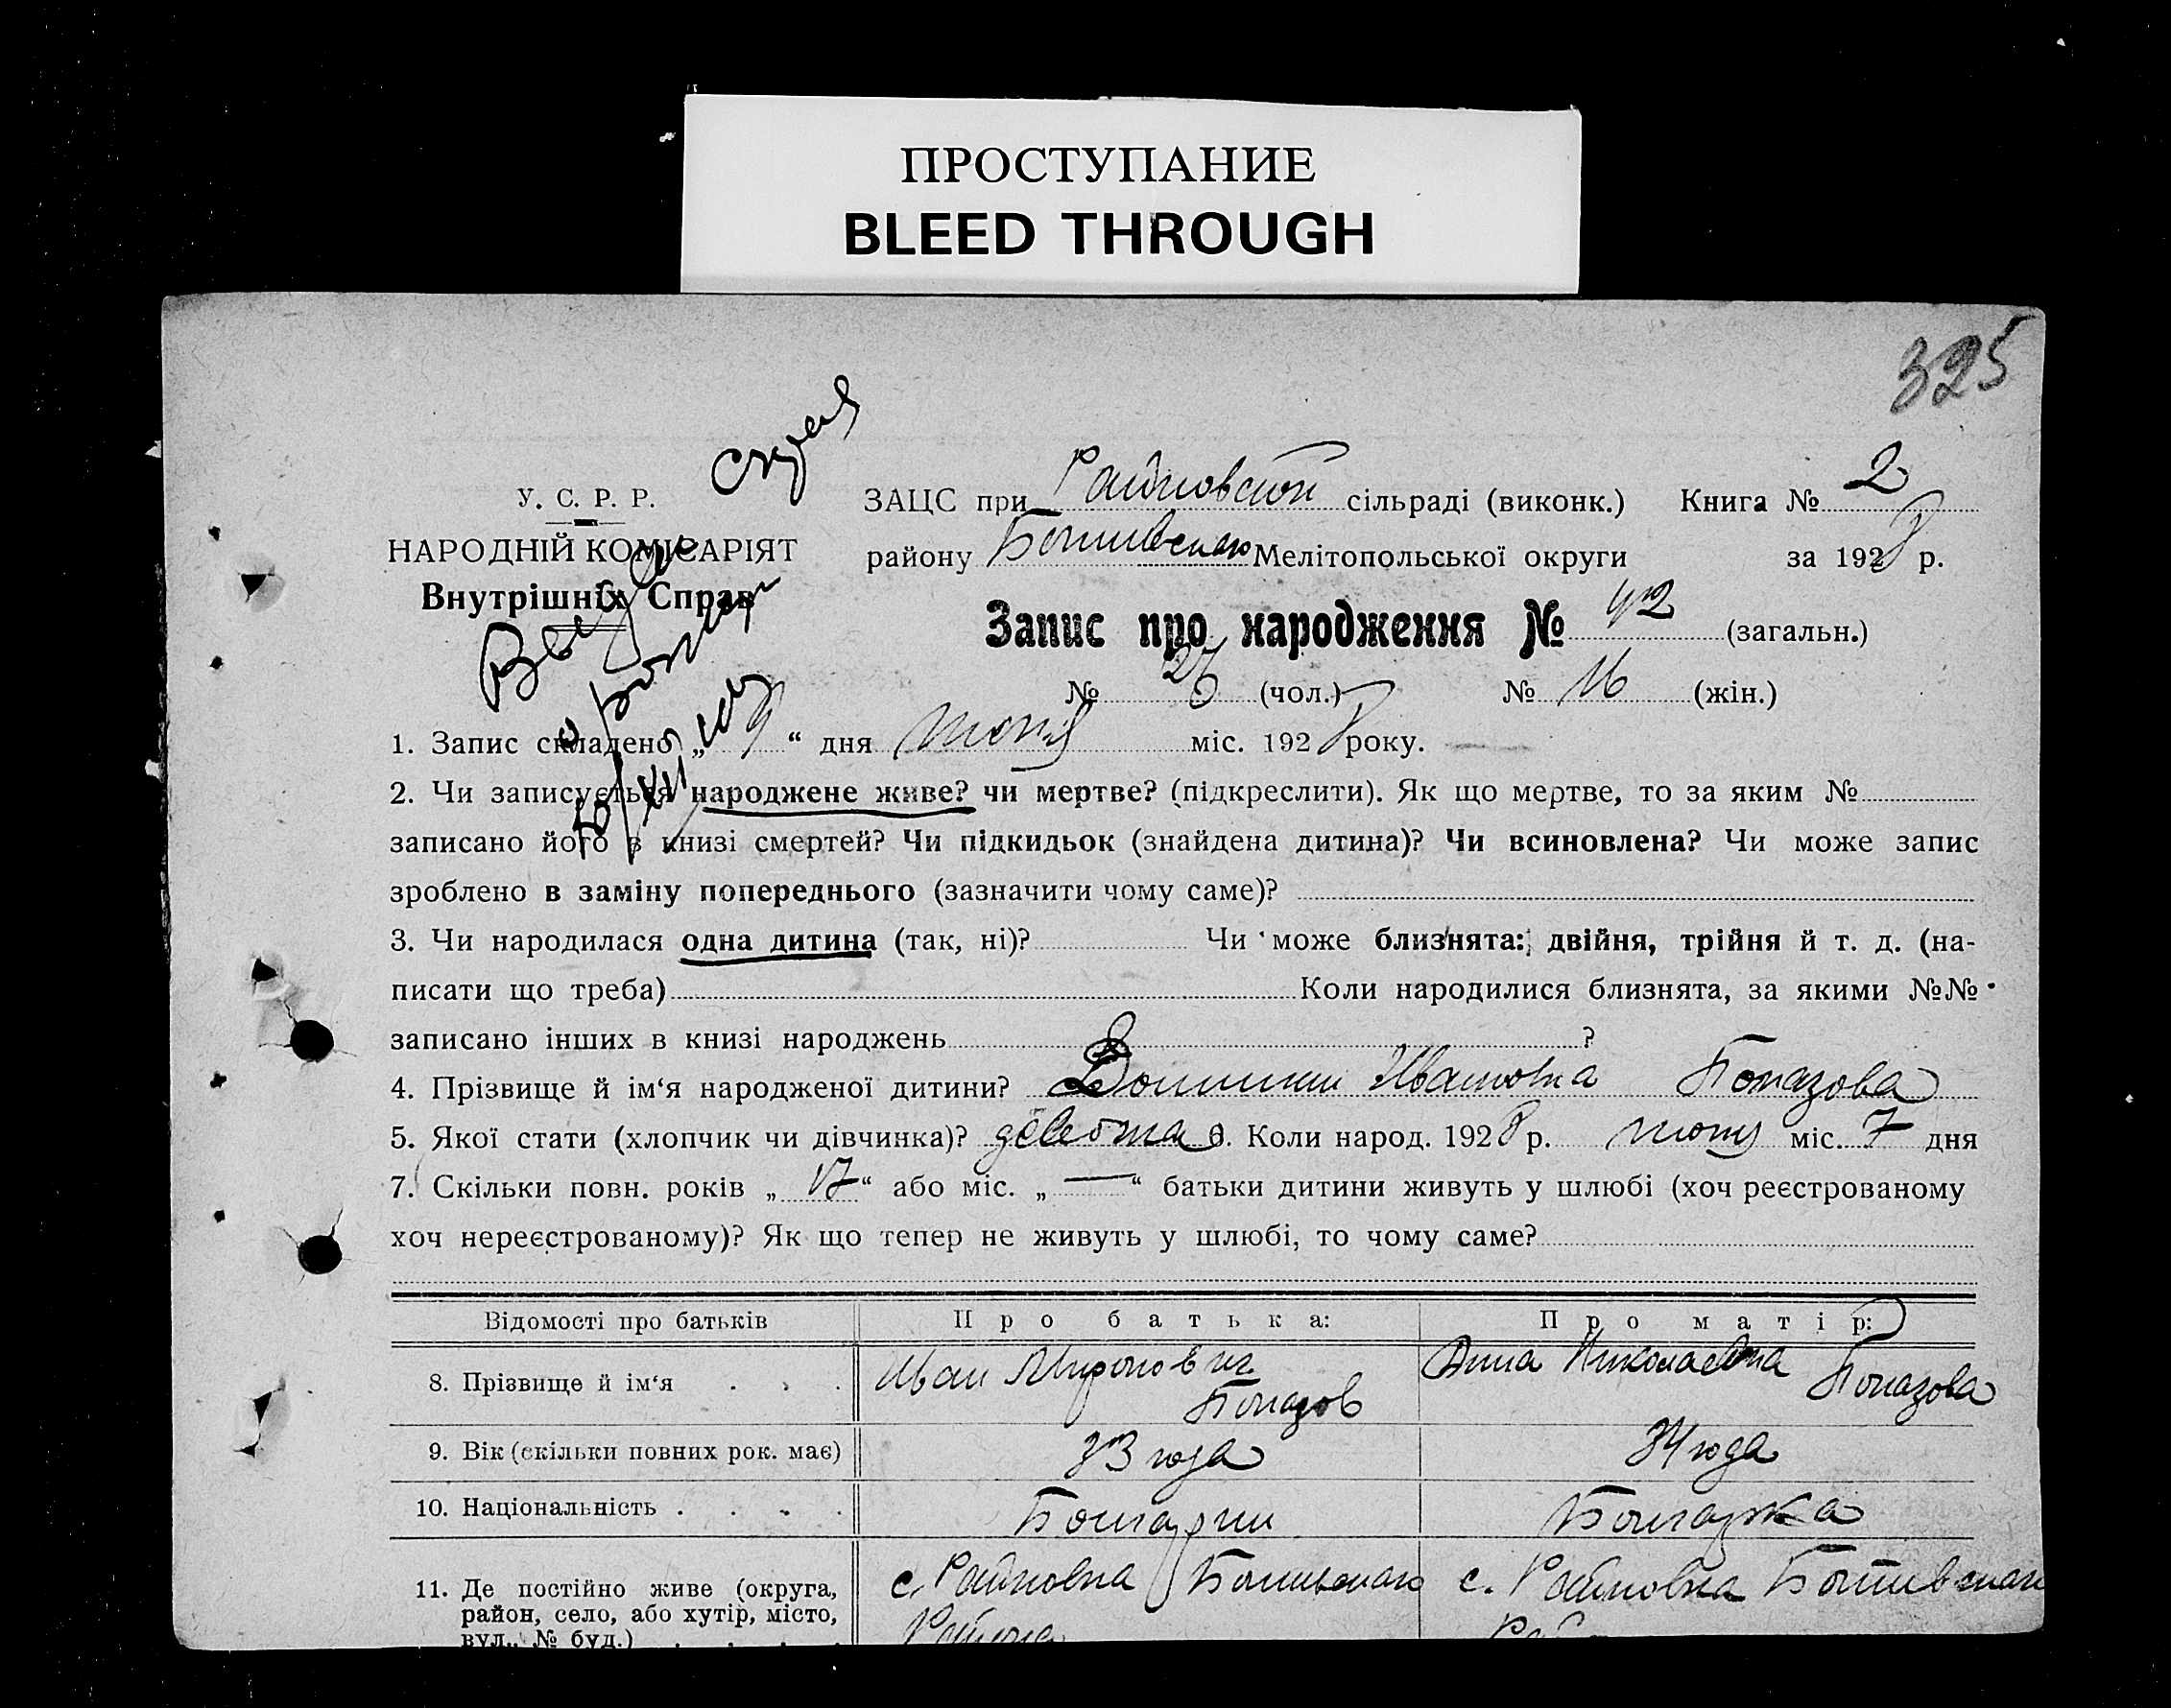 ПРОСТУПАНИЕ
BLEED THROUGH
325
У. С. Р. Р.
НАРОДНІЙ КОМІСАРІЯТ
Внутрішніх Справ
ЗАЦС при Райновской сільраді (виконк.) Книга № 2
району Мелітопольської округи за 1928 р.
Запис про народження № 42 (загальн.)
№ 26 (чол.) № 16 (жін.)
1. Запис складено „ 9 “ дня міс. 1928 року.
2. Чи записується народжене живе? чи мертве? (підкреслити). Як що мертве, то за яким №
записано його в книзі смертей? Чи підкидьок (знайдена дитина)? Чи всиновлена? Чи може запис
зроблено в заміну попереднього (зазначити чому саме)?
3. Чи народилася одна дитина (так, ні)? Чи може близнята: двійня, трійня й т. д. (на-
писати що треба) Коли народилися близнята, за якими №№
записано інших в книзі народжень ?
4. Прізвище й ім‘я народженої дитини? Ивановна
5. Якої стати (хлопчик чи дівчинка)? 6. Коли народ. 1928 р. міс. 7 дня
7. Скільки повн. років „ 17 “ або міс. „ — “ батьки дитини живуть у шлюбі (хоч реєстрованому
хоч нереєстрованому)? Як що тепер не живуть у шлюбі, то чому саме?
Відомості про батьків Про батька: Про матір:
8. Прізвище й ім‘я Иван Миронович Анна Николаевна
9. Вік (скільки повних рок. має) 33 года 34 года
10. Національність Болгарин Болгарка
11. Де постійно живе (округа, с. Райновка с. Райновка
район, село, або хутір, місто, Района
вул., № буд.)